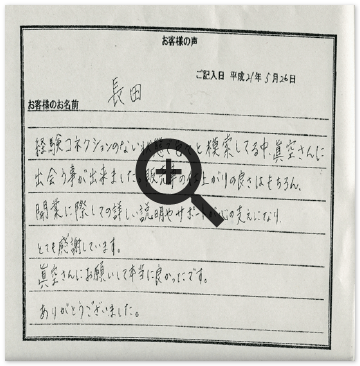 お客様の声
ご記入日 平成21年5月26日
長田
お客様のお名前
経験コネクションのない 模索してる中、真空さんに
出会う事が出来ました 上がりの良さはもちろん、
開業に際しての詳しい説明やサポート 心の支えになり
とても感謝しています。
真空さんにお願いして本当に良かったです。
ありがとうございました。